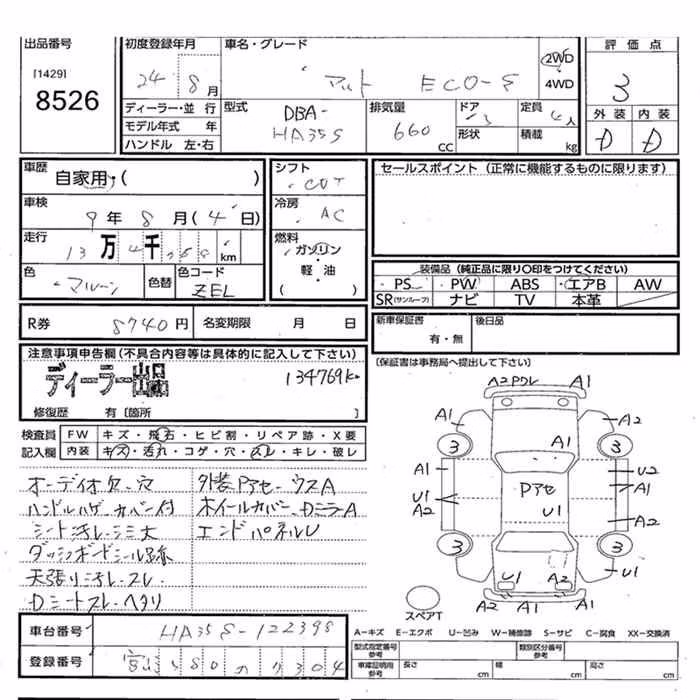 出品番号
[1429]
8526
初度登録年月
24 8 月
車名・グレード
アルト ECO-S
2WD
4WD
評価点
3
外装 内装
D D
ディーラー・並行
モデル年式 年
ハンドル 左・右
型式
DBA-
HA35S
排気量
660
CC
ドア
形状
定員
4人
積載
kg
車歴
自家用・( )
車検
9年 8月 (4日)
走行
13万4千
km
色
マルーン
色替
色コード
ZEL
シフト
CVT
冷房
AC
燃料
ガソリン
・
軽・油
( )
セールスポイント (正常に機能するものに限ります)
装備品 (純正品に限り〇印をつけてください)
PS PW ABS エアB AW
SR(サンルーフ) ナビ TV 本革
R券 8740円 名変期限 月 日
新車保証書
有・無
後日品
(保証書は事務局へ提出して下さい)
注意事項申告欄(不具合内容等は具体的に記入して下さい)
ディーラー出品
134769K
修復歴 有 [箇所 ]
検査員
記入欄
FW キズ・飛石・ヒビ割・リペア跡・X要
内装 キズ・汚れ・コゲ・穴・スレ・キレ・破レ
オーディオ欠・穴 外装Pアセ・ウスA
ハンドルハゲ・カバー付 ホイールカバー、Dミラー A
シート汚レ・シミ大 エンドパネルU
ダッシュボードシール跡
天張り汚レ・スレ
Dシートスレ・ヘタリ
A2 PワレA1
A1 A2
A1
3 3
A1 U2
Pアセ A1
U1 U1
A2 A2
3 3
U1 A2 U1
A2 A1 A1
スペアT
車台番号 HA35S-122398
登録番号
A−キズ E−エクボ U−凹み W−補修跡 S−サビ C−腐食 XX−交換済
型式指定番号
参考
類別区分番号
参考
車庫証明用
参考
長さ cm 幅 cm 高さ cm